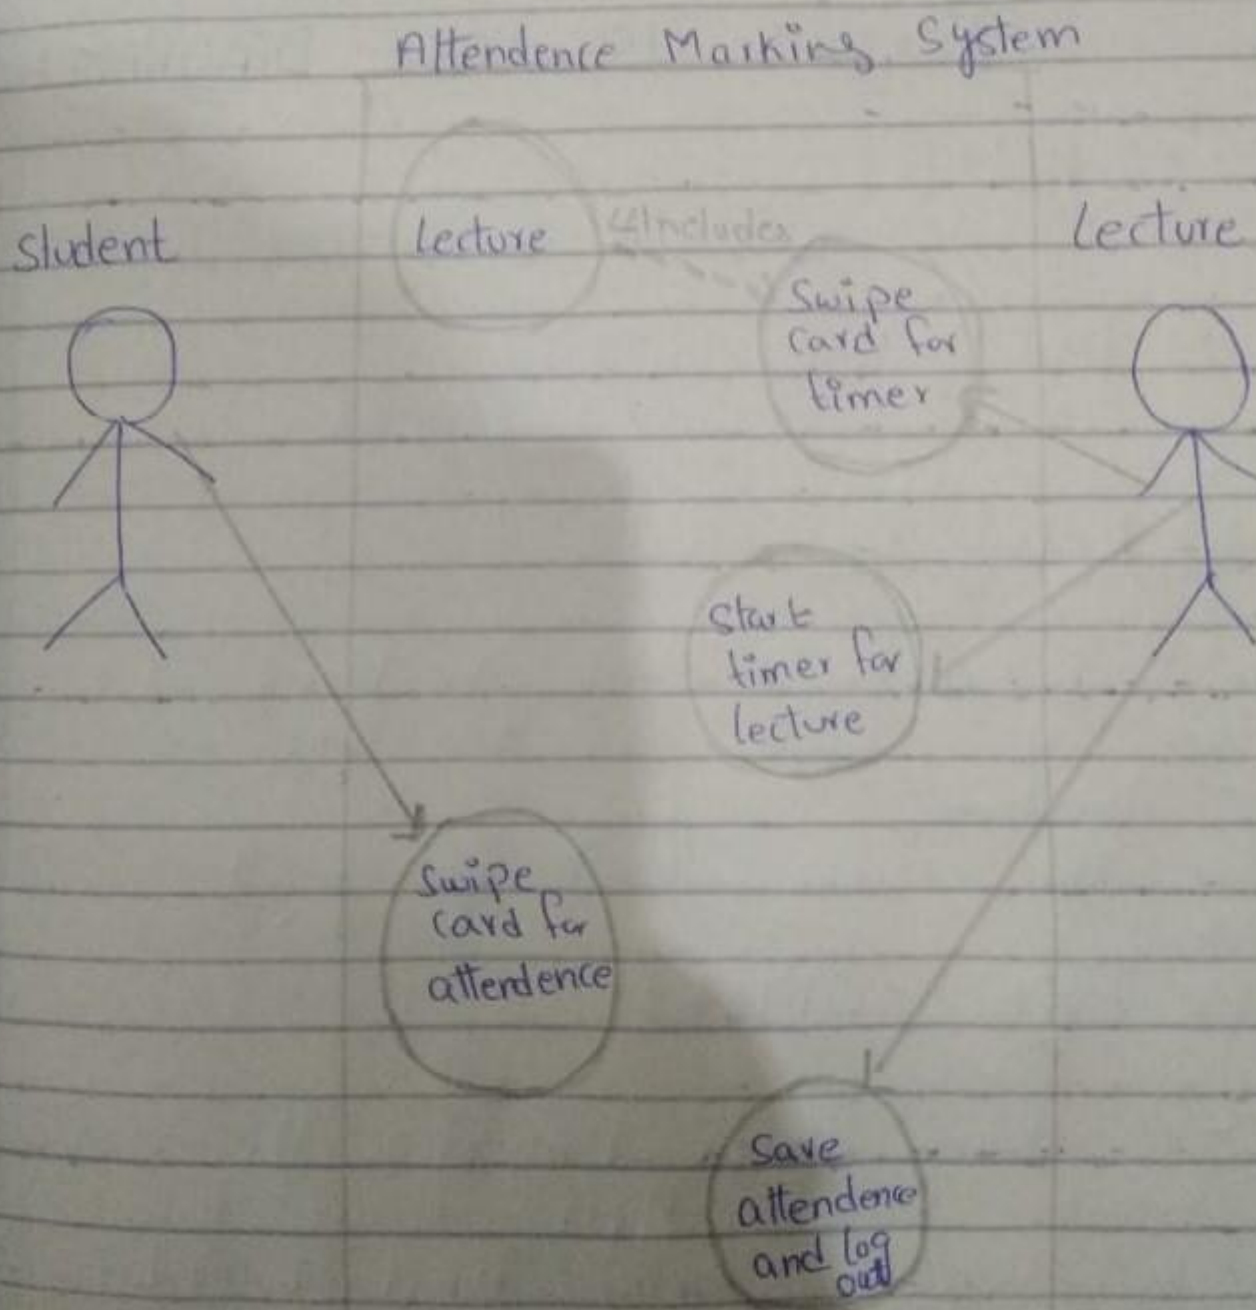 Attendence Marking System
Student
Lecture
<<Includes
Lecture
Swipe
card for
timer
Start
timer for
lecture
Swipe
card for
attendence
Save
attendence
and log
out